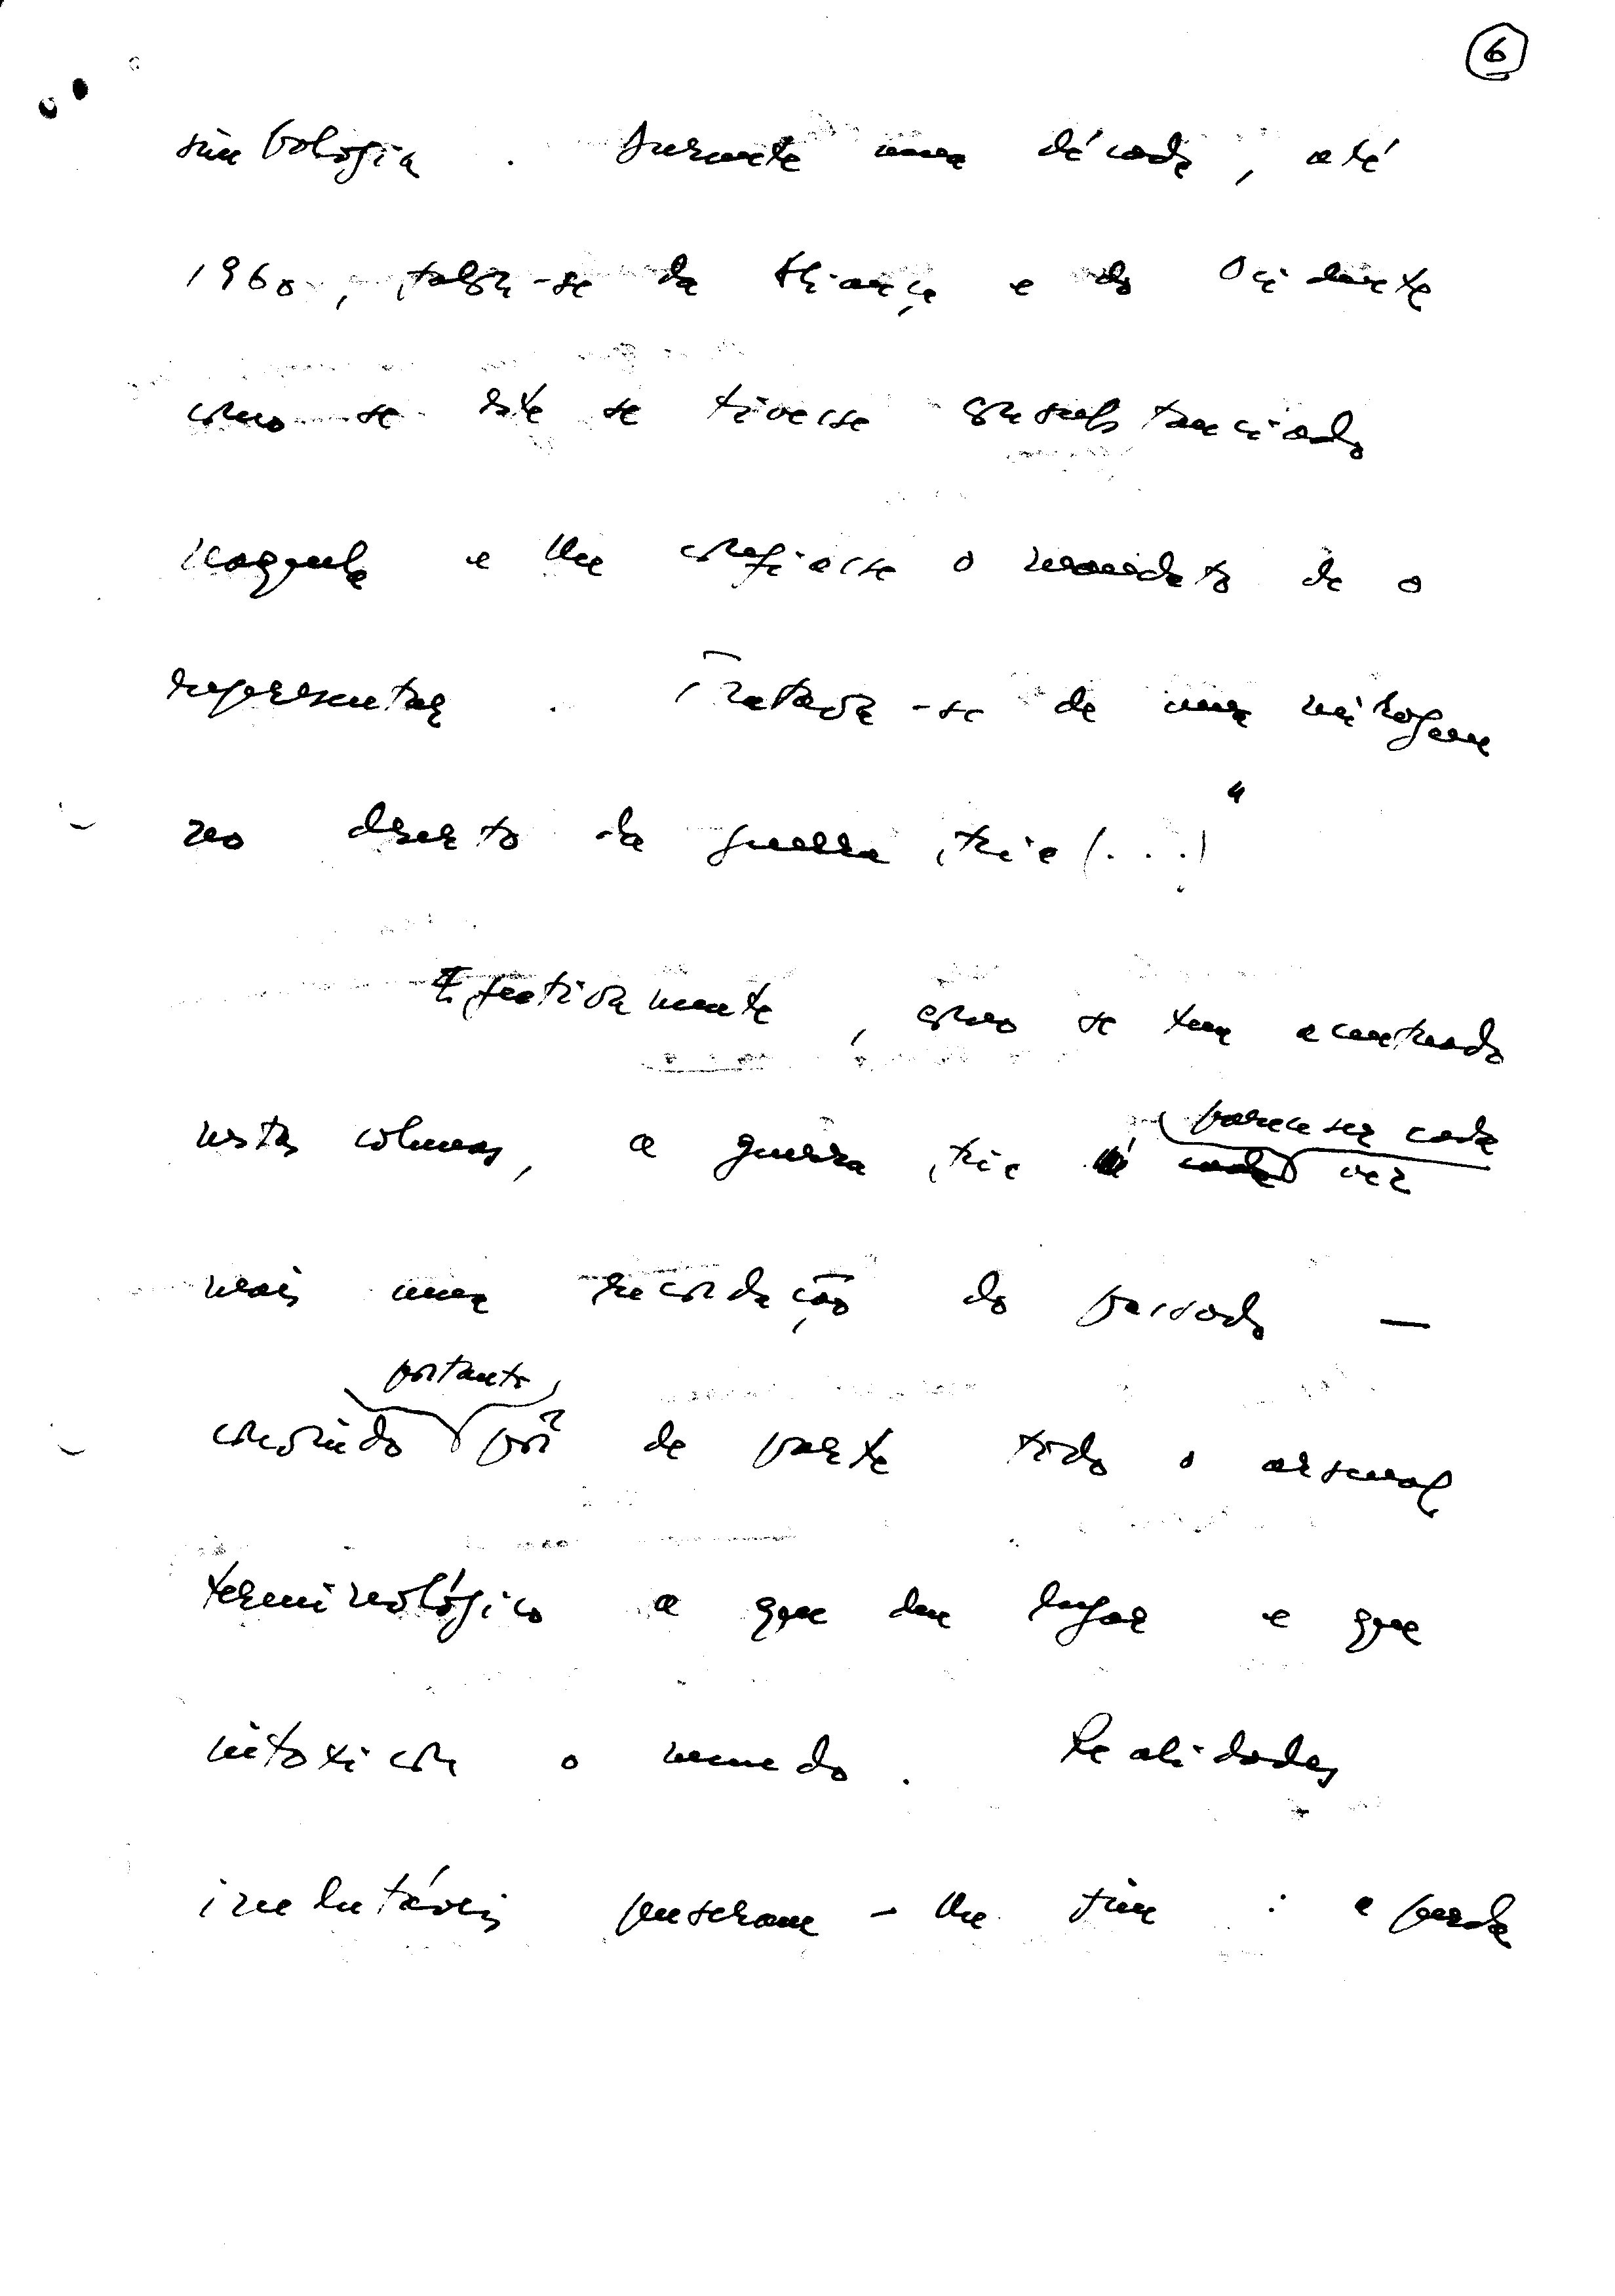 6
simbologia. Durante uma década, até
1960, falou-se da Aliança e do Ocidente
como se este se tivesse consubstanciado
naquela e lhe confiasse o mandato de o
representar. Tratava-se de uma miragem
no deserto da guerra fria (...)"
Efectivamente, como se tem acentuado
nestas colunas, a guerra fria parece ser cada vez
mais uma recordação do passado —
convindo portanto pôr de parte todo o arsenal
terminológico a que deu lugar e que
intoxicou o mundo. Realidades
inelutáveis puseram-lhe fim: a perda